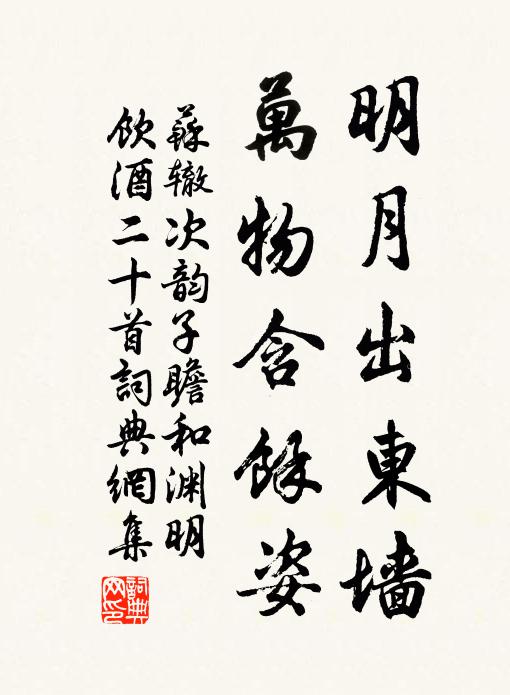 明月出東墻
萬物含餘姿
蘇辙次韵子瞻和渊明
飲酒二十首詞典網集
詞典
网印